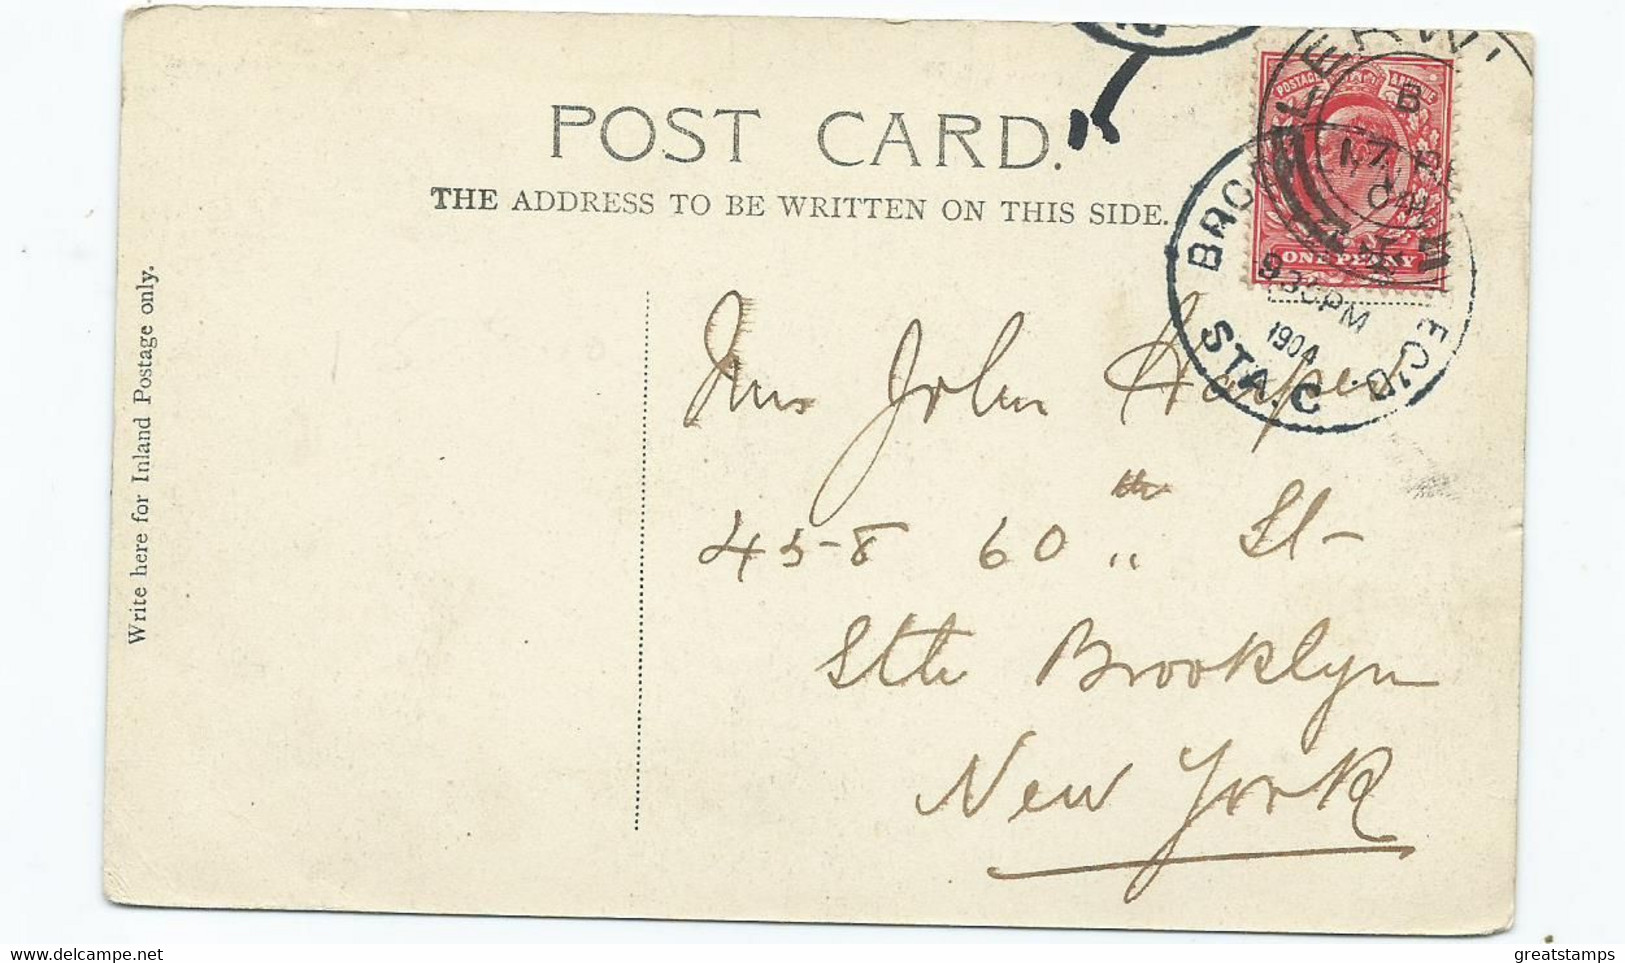 POST CARD.
THE ADDRESS TO BE WRITTEN ON THIS SIDE.
Write here for Inland Postage only.
POSTAGE
ONE PENNY
B
LERWI
17
04
BROO
REC'D.
9 30 PM
1904
STA. C
Mrs John Harper
458 60th St-
Sth Brooklyn
New York
www.delcampe.net
greatstamps